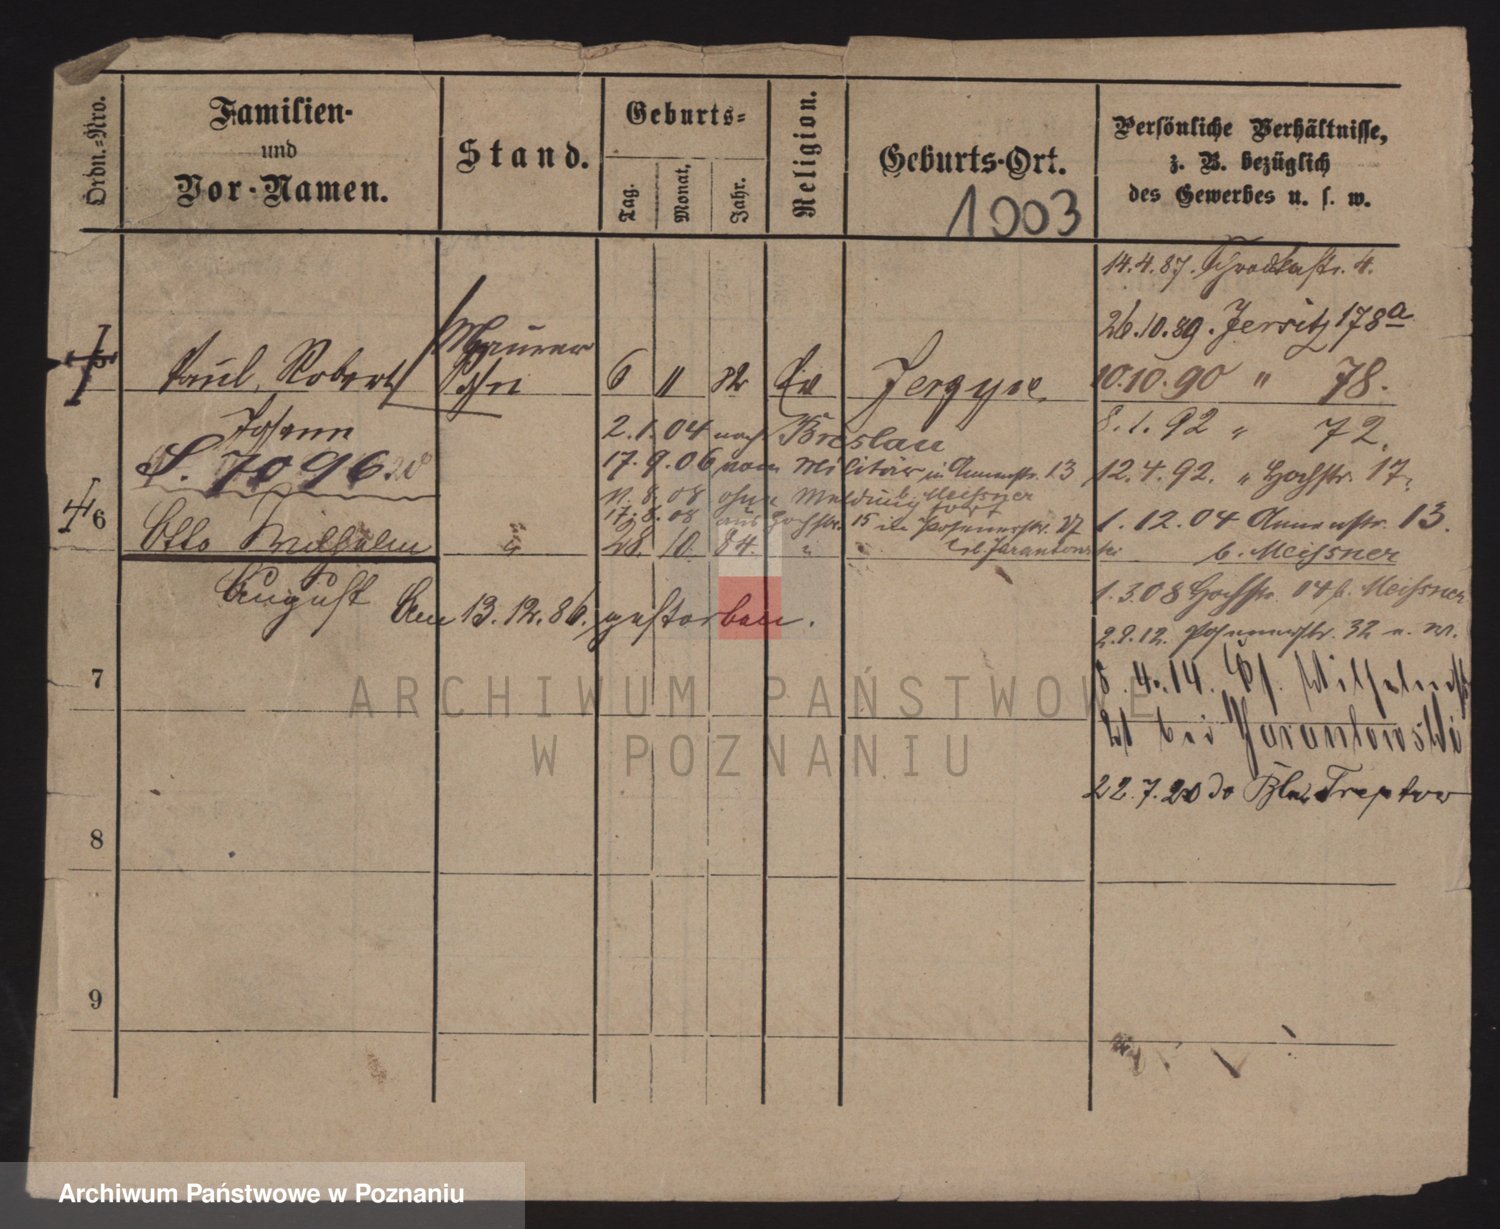 Ordn.-Nro.
Familien-
und
Vor-Namen.
Stand.
Geburts-
Tag.
Monat.
Jahr.
Religion.
Geburts-Ort.
Persönliche Verhältnisse,
z. B. bezüglich
des Gewerbes u. s. w.
1903
14.4.87. Schrodkastr. 4.
26.10.89. Jersitz 178a
Maurer
Paul, Robert Sohn 6 11 82 Ev Jerzyce
10.10.90 " 78.
Johann
2.1.04 nach Breslau
8.1.92 " 72.
S. 7096
17.9.06 vom Militär in Annenstr. 13
12.4.92. " Hochstr. 17
11.8.08 ohne Meldung fort
b. Meissner
6
17.8.08 aus Hochstr. 15 in Posenerstr. 27
1.12.04 Annenstr. 13.
Otto Wilhelm " 28 10 84. "
bei Jarantowski
b. Meissner
August
Am 13.12.86. gestorben.
1.3.08 Hochstr. 04 b. Meissner
2.2.12. Posenerstr. 32
7
ARCHIWUM PAŃSTWOWE
8.4.14. Wilhelmstr
W POZNANIU
21 bei Jarantowski
22.7.20 do Bln Treptow
8
9
Archiwum Państwowe w Poznaniu